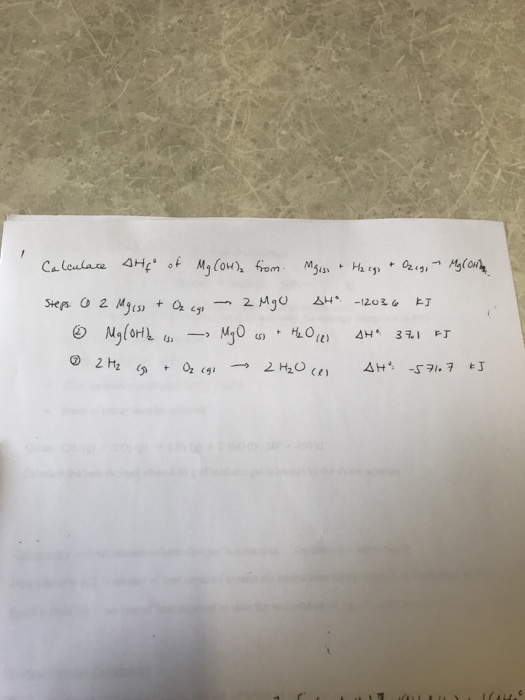 Calculate ΔHf° of Mg(OH)₂ from. Mg(s) + H₂(g) + O₂(g) → Mg(OH)₂
Steps ① 2 Mg(s) + O₂(g) → 2 MgO ΔH° -1203.6 KJ
② Mg(OH)₂(s) → MgO(s) + H₂O(l) ΔH° 37.1 KJ
③ 2H₂(g) + O₂(g) → 2 H₂O(l) ΔH°: -571.7 KJ